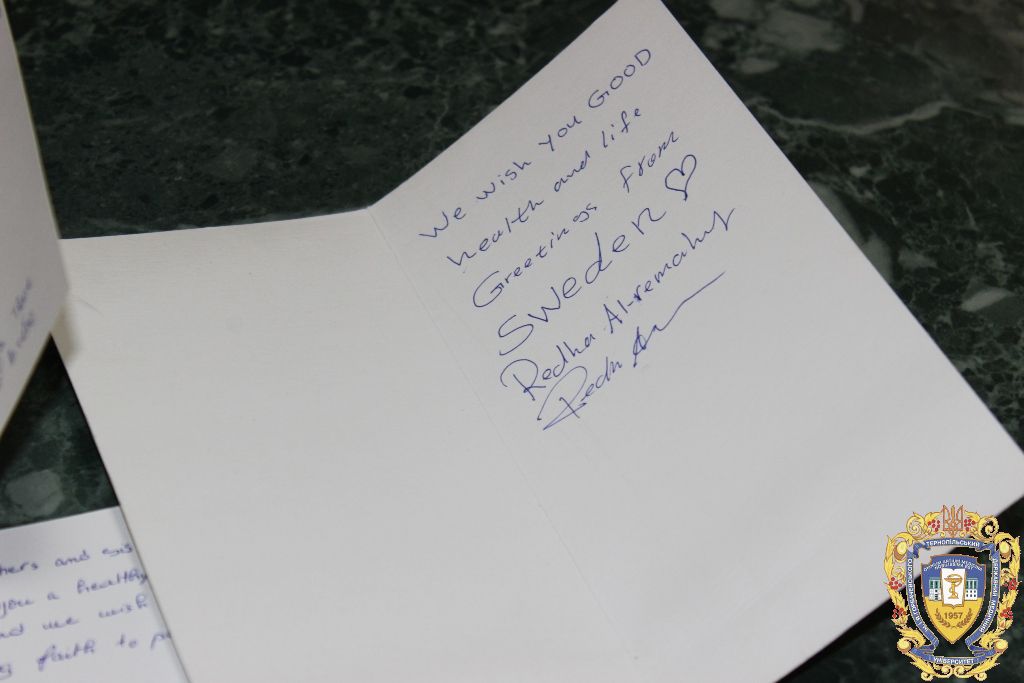 We wish you GOOD
health and life
Greetings from
Sweden ♡
Redha Al-remahy
hers and sis
you a healthy
nd we wish
faith to p
ТЕРНОПІЛЬСЬКИЙ
ДЕРЖАВНИЙ МЕДИЧНИЙ
УНІВЕРСИТЕТ
1957